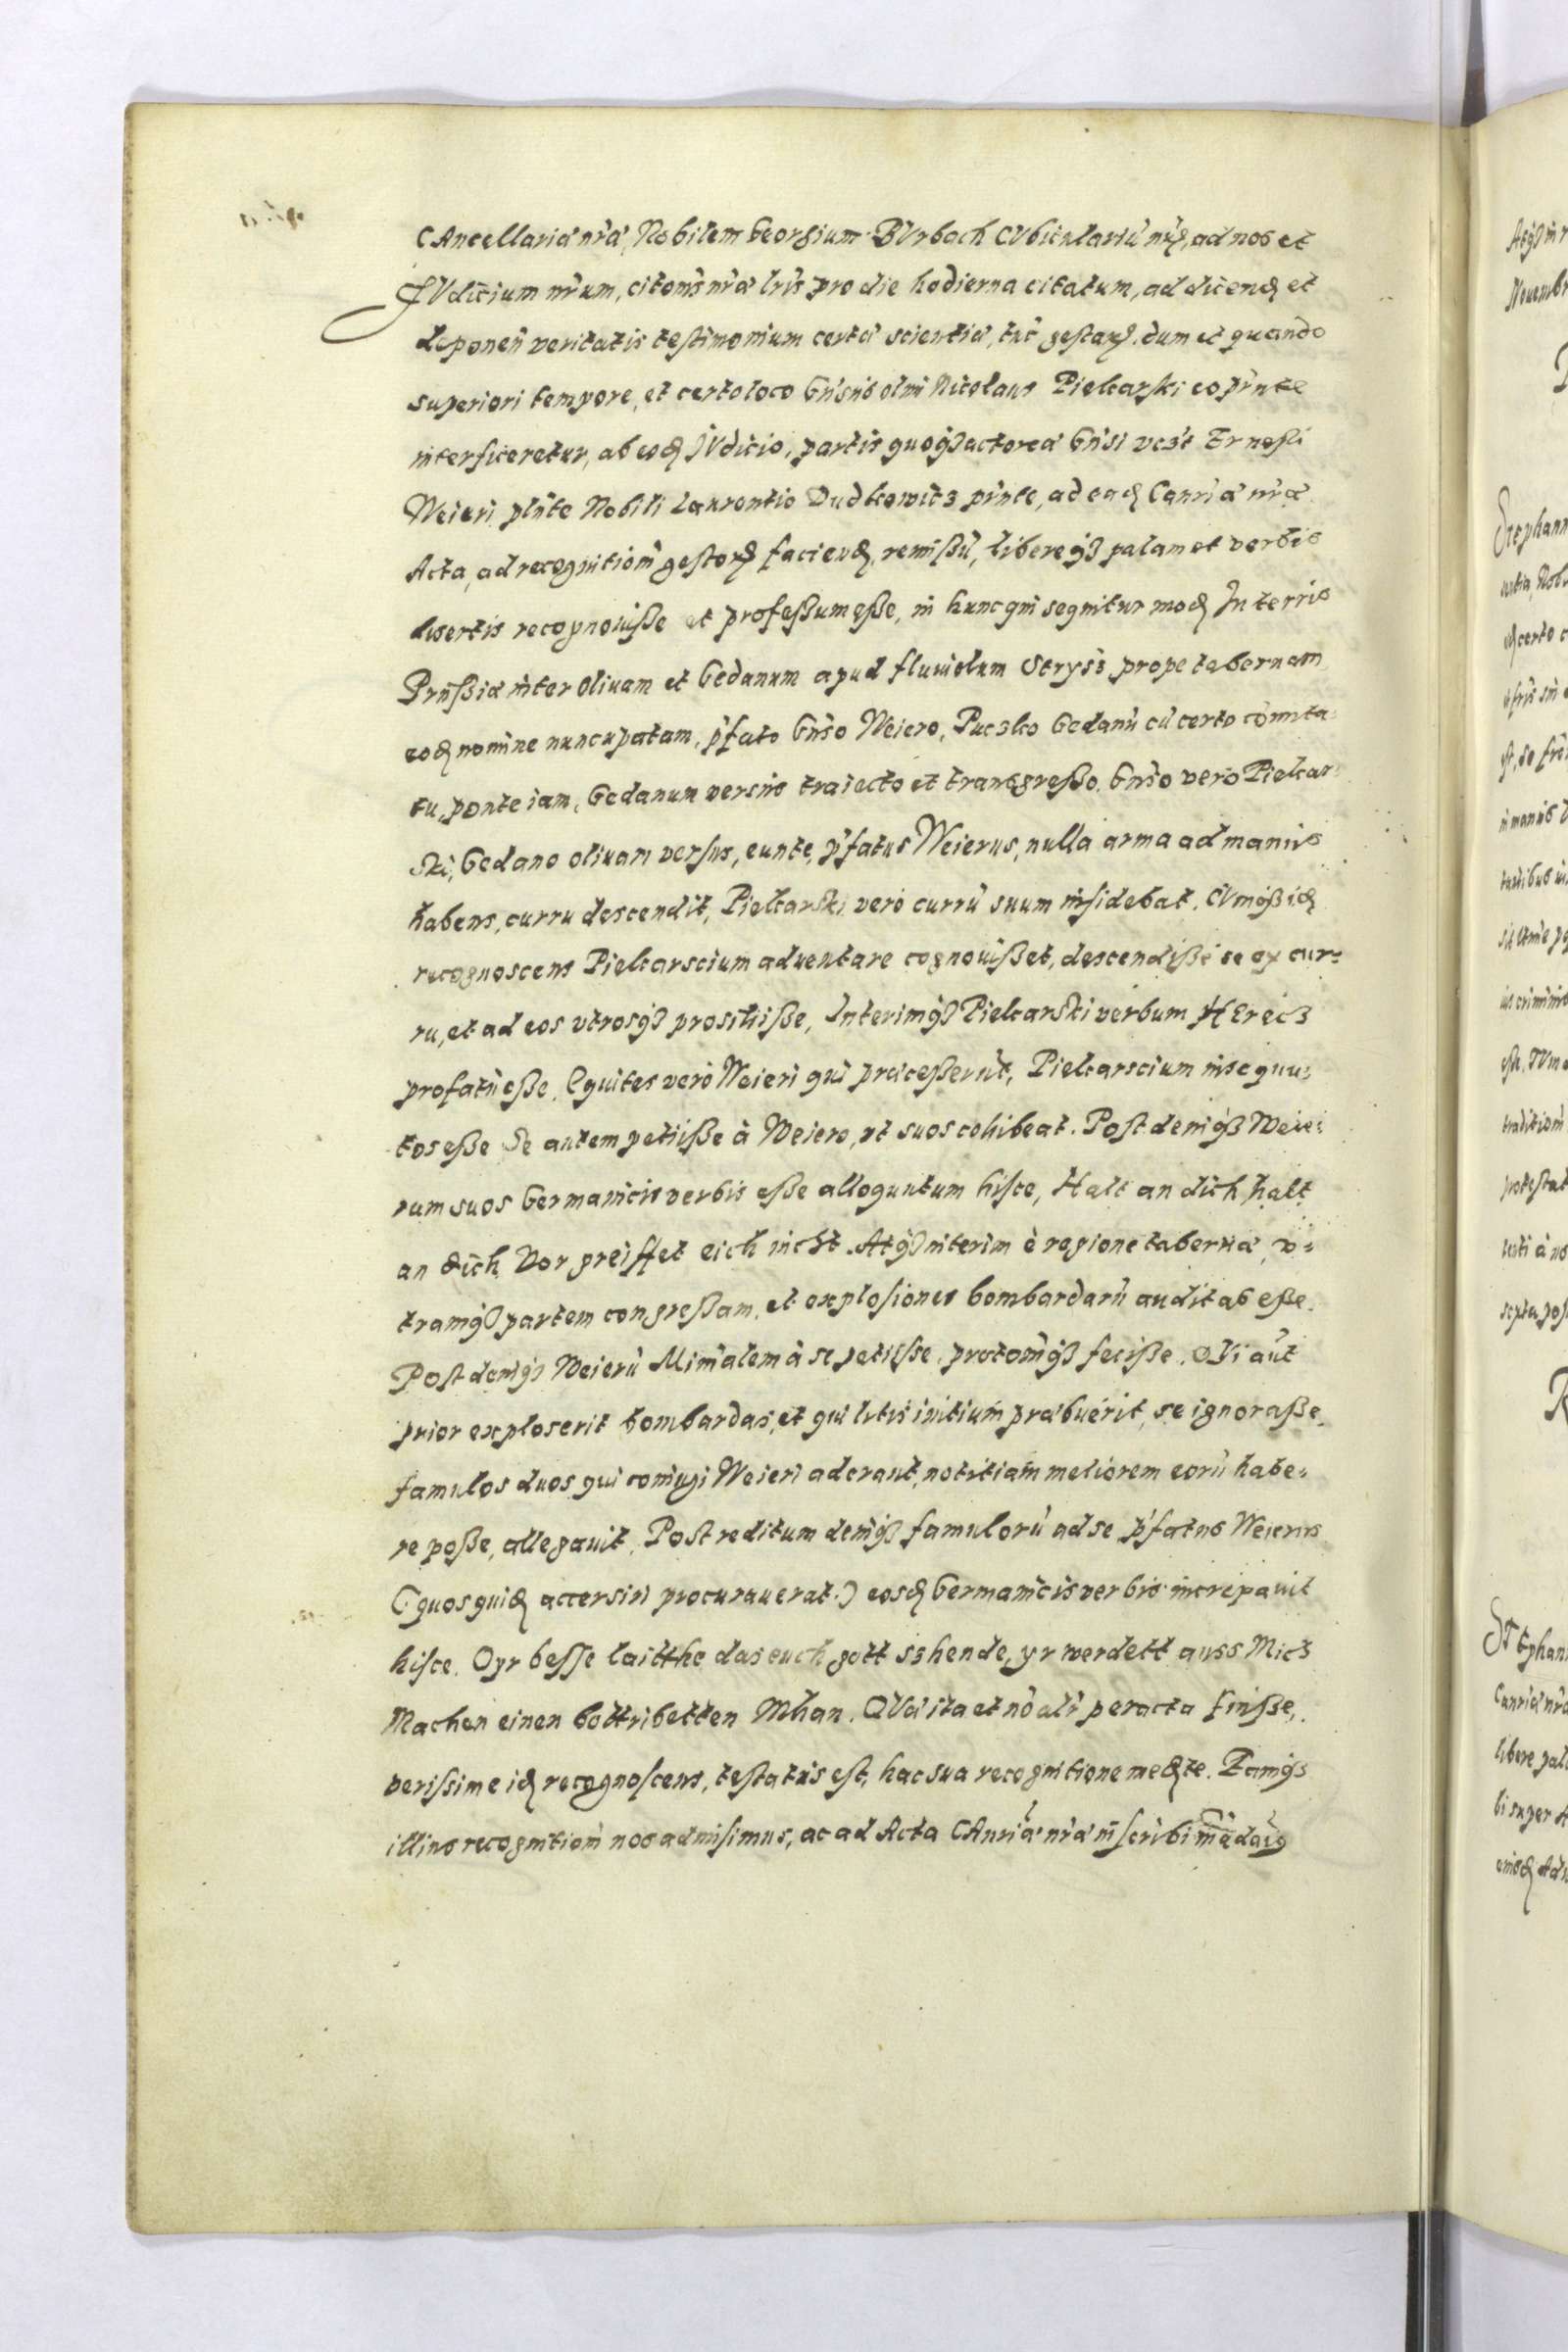 CAncellariæ nr̃æ, Nobilem Georgium BVrbach CVbiculariũ nr̃ꝫ, ad nos et
JVdicium nr̃um, citoñis nr̃æ lr̃is pro die hodierna citatum, ad dicendꝫ et
deponeñ veritatis testimonium certæ scientiæ, tũc gestarꝫ. dum et quando
superiori tempore, et certo loco Gñsus olim Nicolaus Piekarski eo pr̃nte
interficeretur, ab eodꝫ JVdicio, partis quoqꝫ actoreæ Gñsi
Weieri plñte Nobili Laurentio Dudkowicz pr̃nte, ad eadꝫ Canriæ nr̃æ
Acta, ad recognitioñ gestorꝫ faciendꝫ, remißũ, libereqꝫ palam et verbis
disertis recognouiße et profeßum eße, in hunc qui sequitur modꝫ In terris
Prußiæ inter Oliuam et Gedanum apud fluuiolum Strysz prope tabernam
eodꝫ nomine nuncupatam, p̃fato Gñso Weiero, Puczko Gedanũ cũ certo comita=
tu, ponte iam, Gedanum versus traiecto et transgreßo. Gñso vero Piekar=
ski, Gedano oliuam versus, eunte, p̃fatus Weierus, nulla arma ad manus
habens, curru descendit, Piekarski vero currũ suum insidebat. CVmqꝫ idꝫ
recognoscens Piekarscium aduentare cognouißet, descendiße se ex cur=
ru, et ad eos vtrosqꝫ prosiliiße, Interimqꝫ Piekarski verbum HErecz
profatũ eße. Equites vero Weieri qui præceßerũt, Piekarscium insequu=
tos eße Se autem petiiße à Weiero, vt suos cohibeat. Post deniqꝫ Weie=
rum suos Germanicis verbis eße alloquutum hisce, Halt an dich halt
an dich Vor greiffet eich nicht. Atqꝫ interim è regione tabernæ v=
tramqꝫ partem congreßam, et explosiones bombardarũ auditas eße.
Post deniqꝫ Weierũ à se petiisse, feciße. QVi aũt
prior exploserit bombardas, et qui litis initium præbuerit, se ignoraße.
famulos duos qui coniugi Weieri aderant, notitiam meliorem eorũ habe=
re poße, allegauit. Post reditum deniqꝫ famulorũ ad se p̃fatus Weierus
(quos quidꝫ accersiri procurauerat) eosdꝫ Germanicis verbis increpauit
hisce. O yr besse laitthe das euch gott sshende, yr werdett auss Mich
Machen einen bettribetten Mhan. QVæ ita et nõ alr̃ peracta fuisse,
verissime idꝫ recognoscens, testatus est, hac sua recognitione medꝫte. Eamqꝫ
illius recognitioñ nos admisimus, ac ad Acta CAnriæ nr̃æ inscribi